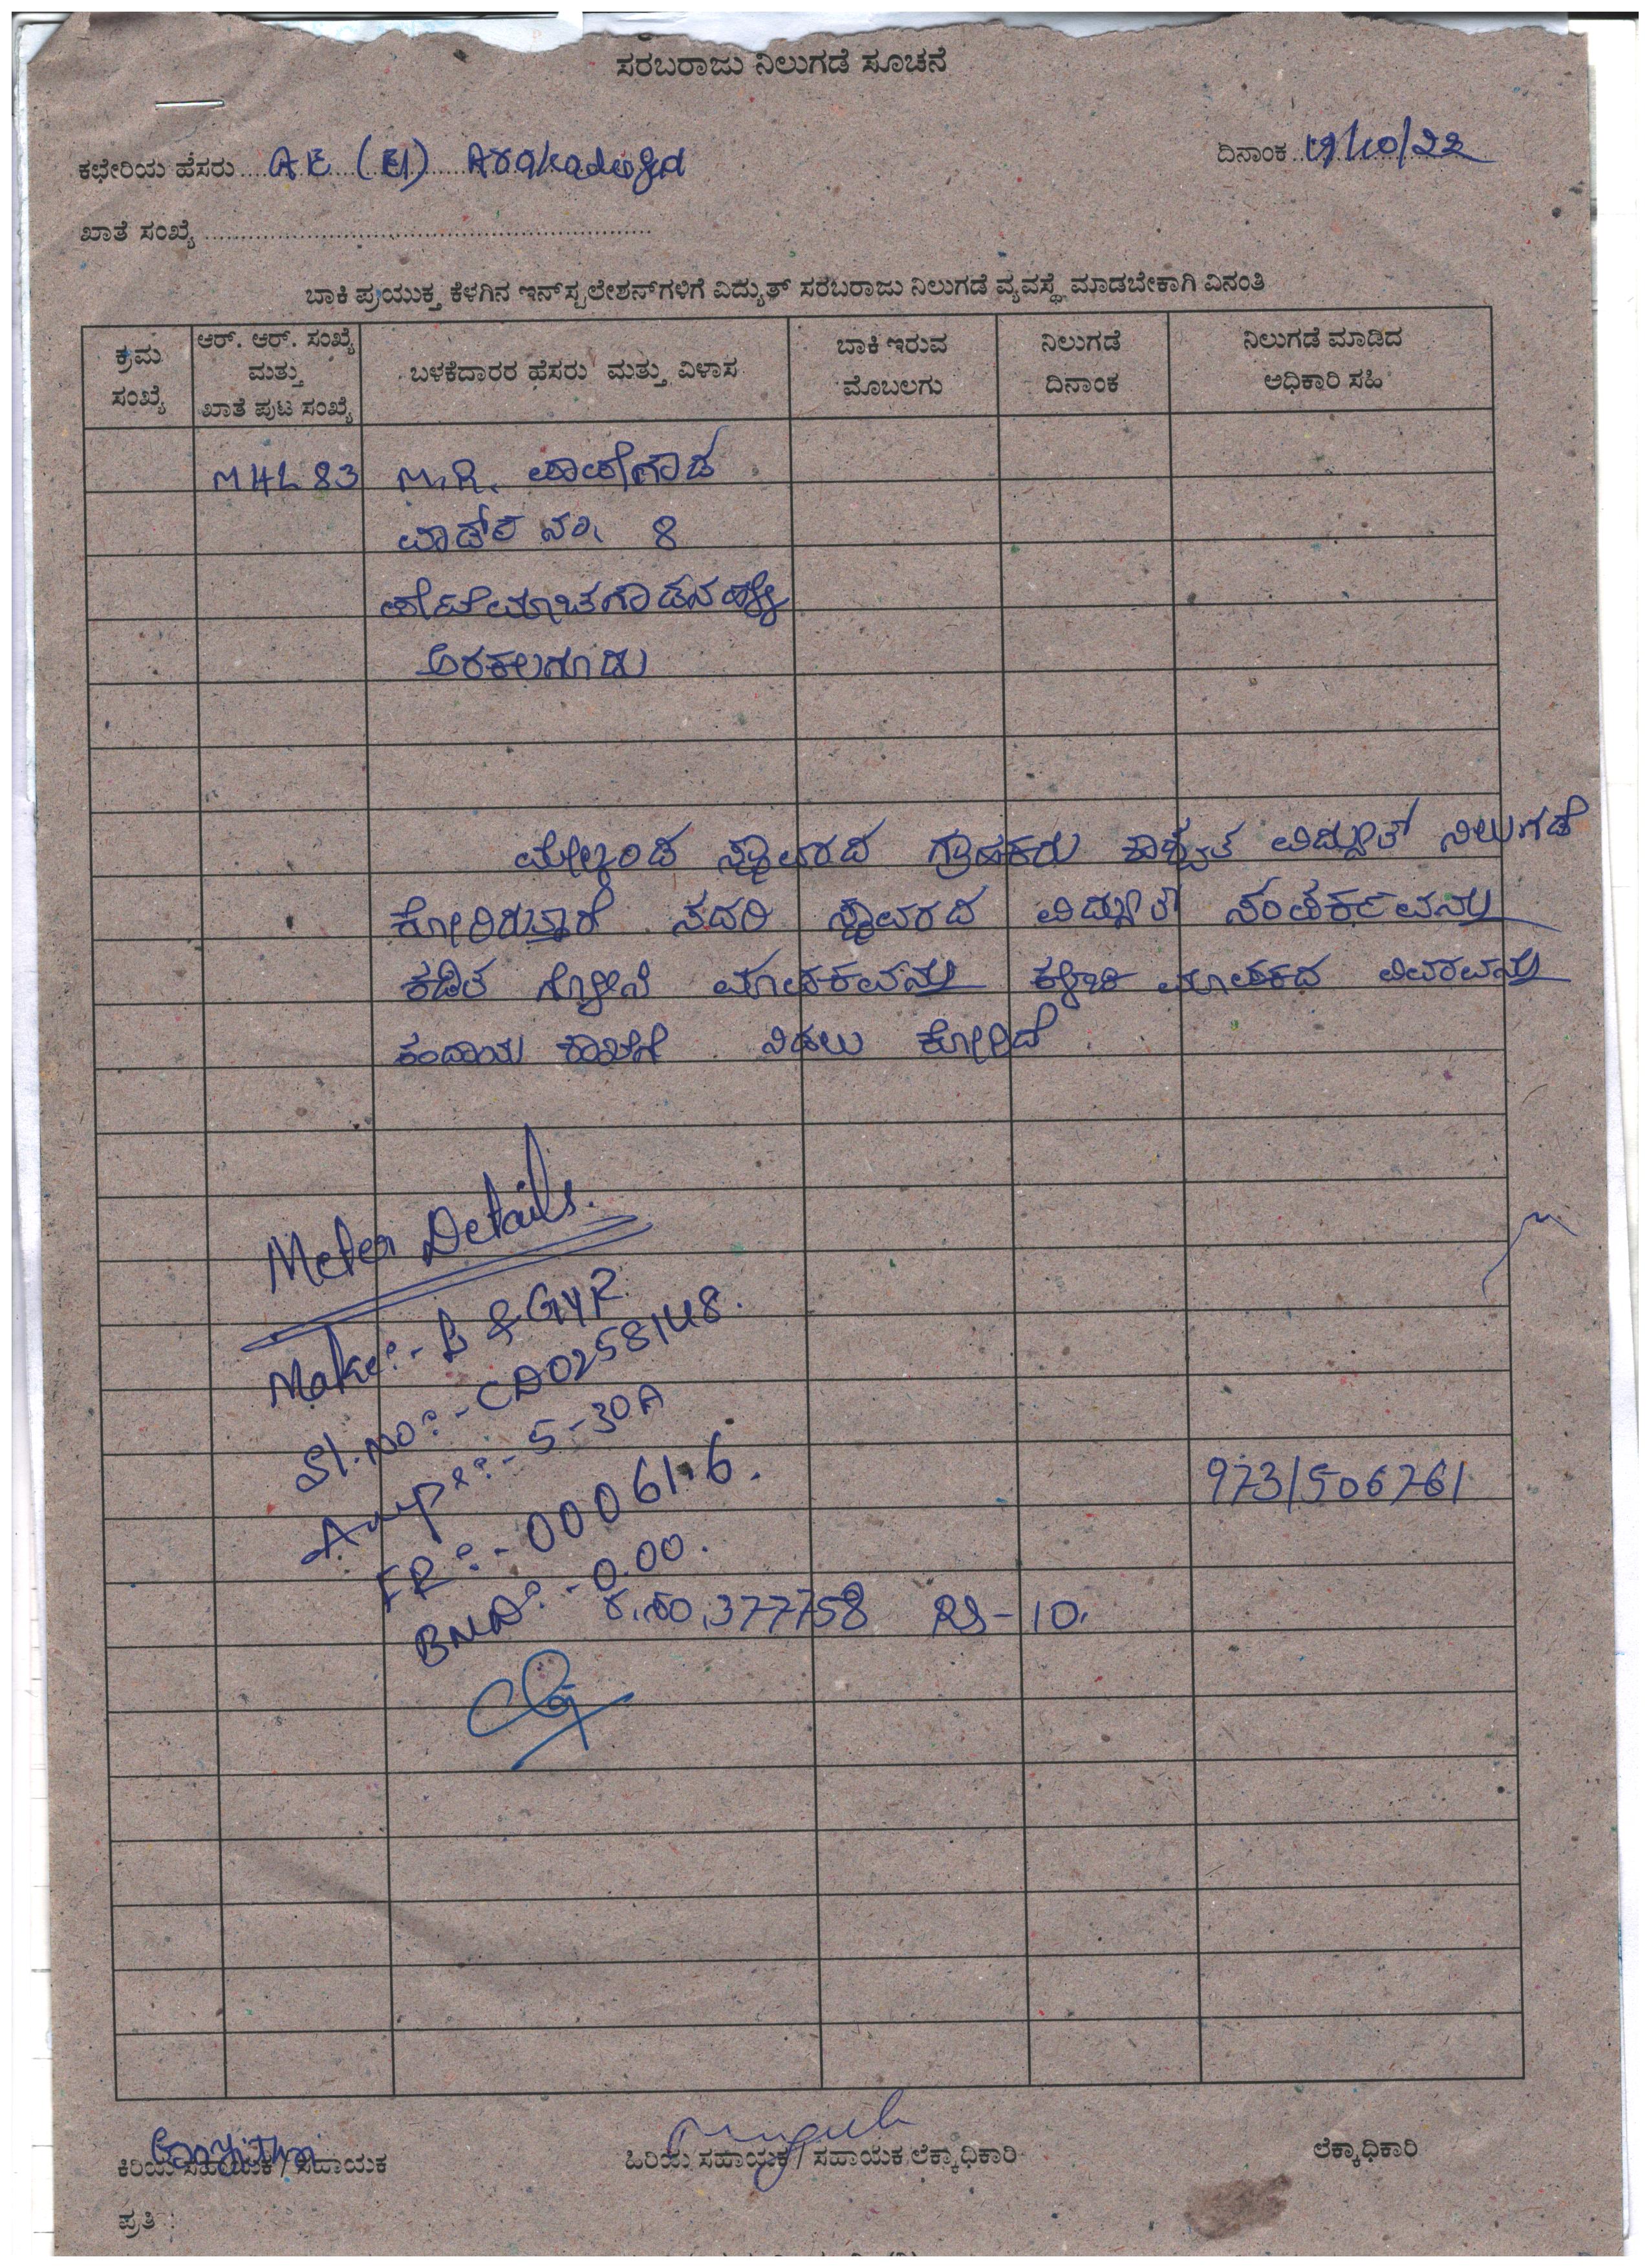 ಸರಬರಾಜು ನಿಲುಗಡೆ ಸೂಚನೆ
ಕಛೇರಿಯ ಹೆಸರು AE (El)
ದಿನಾಂಕ 19/10/22
ಖಾತೆ ಸಂಖ್ಯೆ
ಬಾಕಿ ಪ್ರಯುಕ್ತ ಕೆಳಗಿನ ಇನ್‌ಸ್ಟಲೇಶನ್‌ಗಳಿಗೆ ವಿದ್ಯುತ್ ಸರಬರಾಜು ನಿಲುಗಡೆ ವ್ಯವಸ್ಥೆ ಮಾಡಬೇಕಾಗಿ ವಿನಂತಿ
ಕ್ರಮ ಸಂಖ್ಯೆ
ಆರ್. ಆರ್. ಸಂಖ್ಯೆ ಮತ್ತು ಖಾತೆ ಪುಟ ಸಂಖ್ಯೆ
ಬಳಕೆದಾರರ ಹೆಸರು ಮತ್ತು ವಿಳಾಸ
ಬಾಕಿ ಇರುವ ಮೊಬಲಗು
ನಿಲುಗಡೆ ದಿನಾಂಕ
ನಿಲುಗಡೆ ಮಾಡಿದ ಅಧಿಕಾರಿ ಸಹಿ
MHL 83 M.R. ಪಾಪೇಗೌಡ
ವಾರ್ಡ್ ನಂ. 8
ಅರಕಲಗೂಡು
ಮೇಲ್ಕಂಡ ಸ್ಥಾವರದ ಗ್ರಾಹಕರು ಶಾಶ್ವತ ವಿದ್ಯುತ್ ನಿಲುಗಡೆ
ಕೋರಿರುತ್ತಾರೆ ಸದರಿ ಸ್ಥಾವರದ ವಿದ್ಯುತ್ ಸಂಪರ್ಕವನ್ನು
ಕಡಿತ ಗೊಳಿಸಿ ಮಾಪಕವನ್ನು ಕಳಚಿ ಮಾಪಕದ ವಿವರವನ್ನು
ಕಂದಾಯ ಶಾಖೆಗೆ ನೀಡಲು ಕೋರಿದೆ.
Meter Details.
Make:- L & GYR.
Sl.No:- CD0258148.
Amp:- 5-30A
FR:- 00061.6.
973/506761
BMD:- 0.00.
377758 RS-10.
ಕಿರಿಯ ಸಹಾಯಕ / ಸಹಾಯಕ
ಹಿರಿಯ ಸಹಾಯಕ / ಸಹಾಯಕ ಲೆಕ್ಕಾಧಿಕಾರಿ
ಲೆಕ್ಕಾಧಿಕಾರಿ
ಪ್ರತಿ :